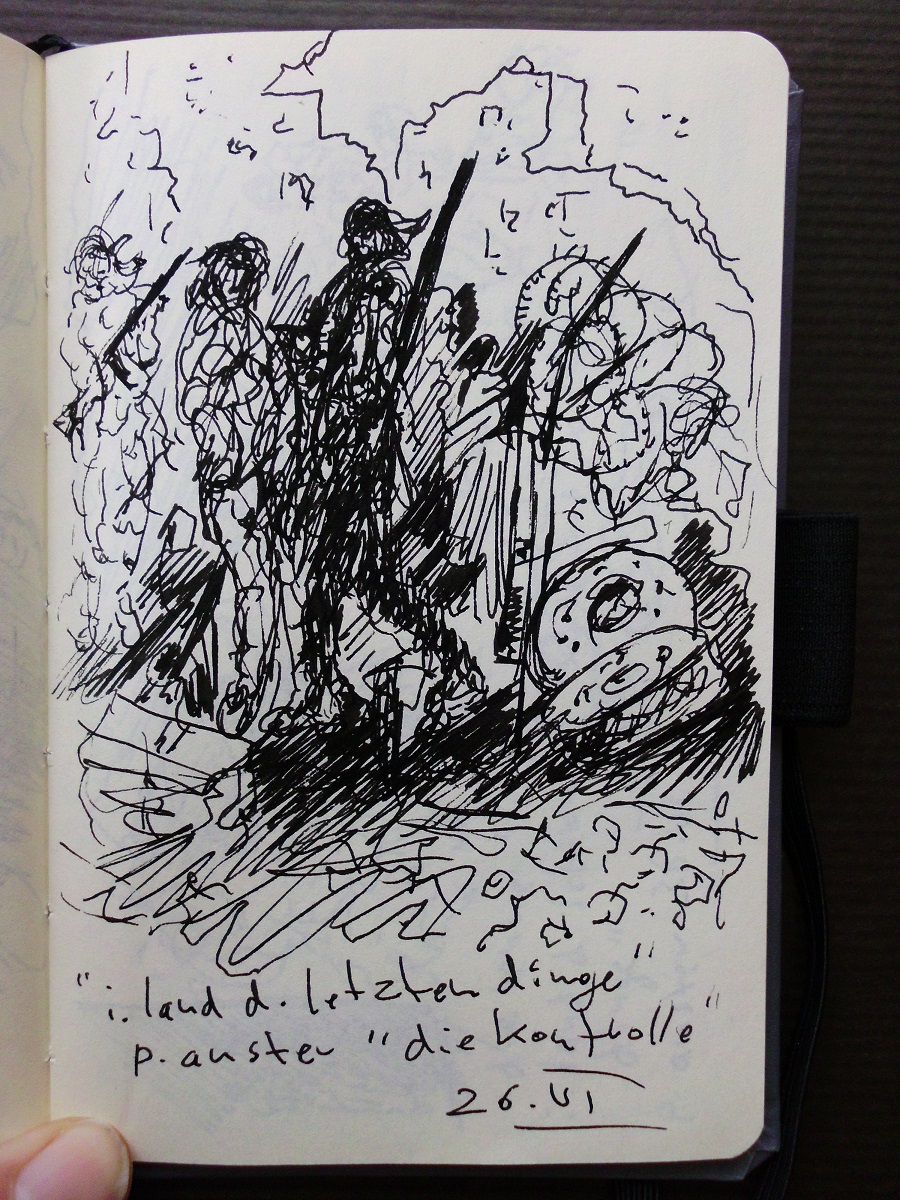 "i. land d. letzten dinge"
p. auster "die kontrolle"
26. VI